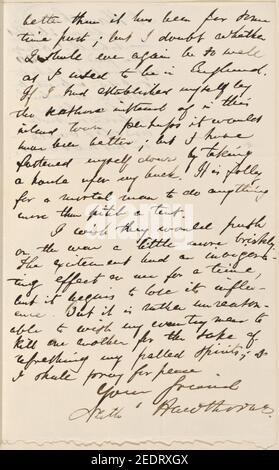 better than it has been for some
time past; but I doubt whether
I shall ever again be so well
as I used to be in England.
If I had established myself by
the seashore instead of in this
inland town, perhaps it would
have been better; but I have
fastened myself down by taking
a house upon my back. It is folly
for a mortal man to do anything
more than pitch a tent.
I wish they would push
on the war a little more briskly.
The excitement had an invigora-
ting effect on me for a time,
but it begins to lose its influ-
ence. But it is rather unreason-
able to wish my countrymen to
kill one another for the sake of
refreshing my palled spirits; so
I shall pray for peace.
Your friend
Nathl Hawthorne.
alamy
Image ID: 2EDRXGX
www.alamy.com